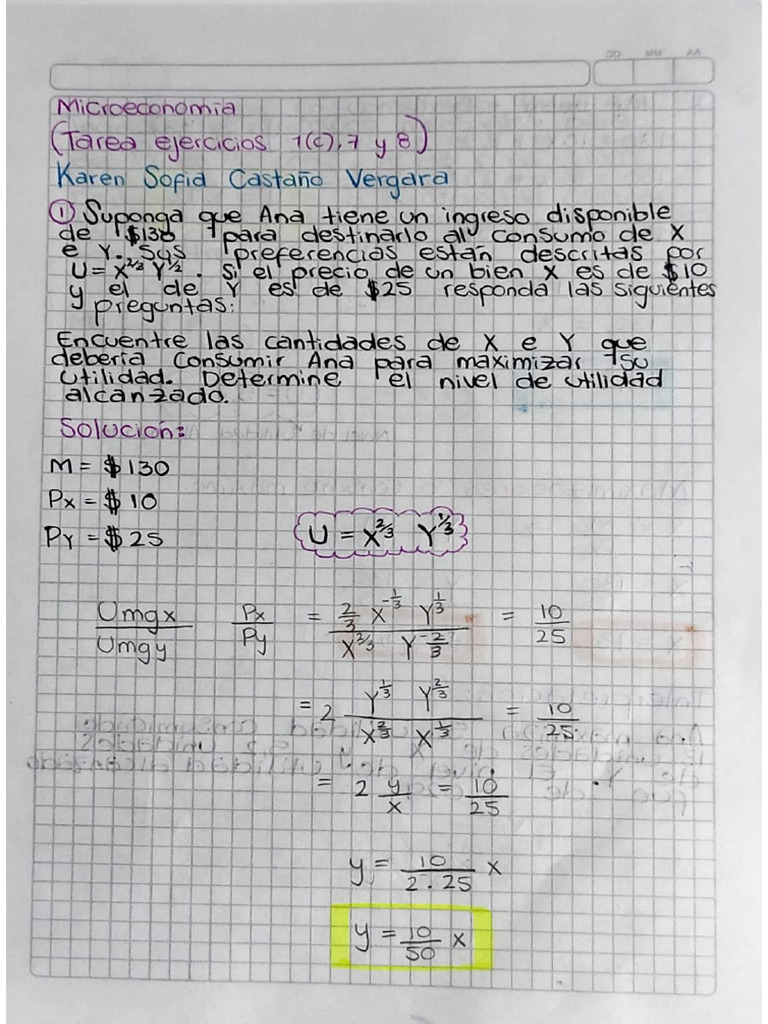 DD MM AA
Microeconomia
(Tarea ejercicios 1(c), 7 y 8)
Karen Sofia Castaño Vergara
① Suponga que Ana tiene un ingreso disponible
de $130 para destinarlo al consumo de X
e Y. Sus preferencias están descritas por
U = X^{2/3} Y^{1/2}. Si el precio de un bien X es de $10
y el de Y es de $25 responda las siguientes
preguntas:
Encuentre las cantidades de X e Y que
deberia consumir Ana para maximizar su
utilidad. Determine el nivel de utilidad
alcanzado.
Solución:
M = $130
Px = $ 10
PY = $ 25
U = X^{2/3} Y^{1/3}
Umgx/Umgy Px/Py = (2/3 X^{-1/3} Y^{1/3})/(X^{2/3} Y^{-2/3}) = 10/25
= 2 (Y^{1/3} Y^{2/3})/(X^{2/3} X^{1/3}) = 10/25
= 2 y/x = 10/25
y = 10/(2 . 25) x
y = 10/50 x